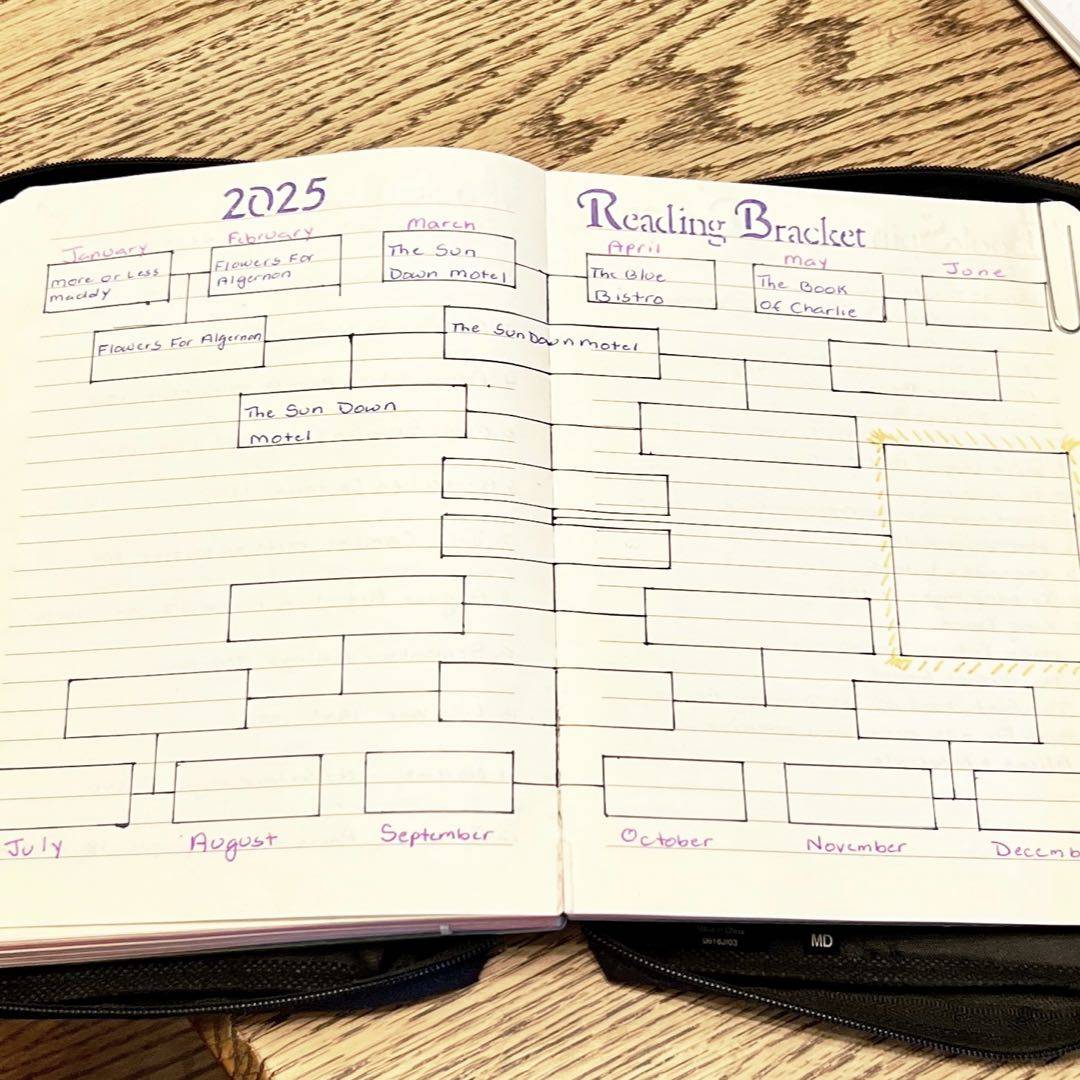 2025
Reading Bracket
January
February
March
April
May
June
more or Less
maddy
Flowers For
Algernon
The Sun
Down motel
The Blue
Bistro
The Book
Of Charlie
Flowers For Algernon
The Sun Down motel
The Sun Down
motel
July
August
September
October
November
Decemb
Made in China
MD